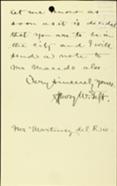 let me know as
soon as it is decided
that you are to be in
the city and I will
send a note to
Mr Macedo also
Very sincerely yours,
Henry W. Taft.
Mrs Martinez del Rio